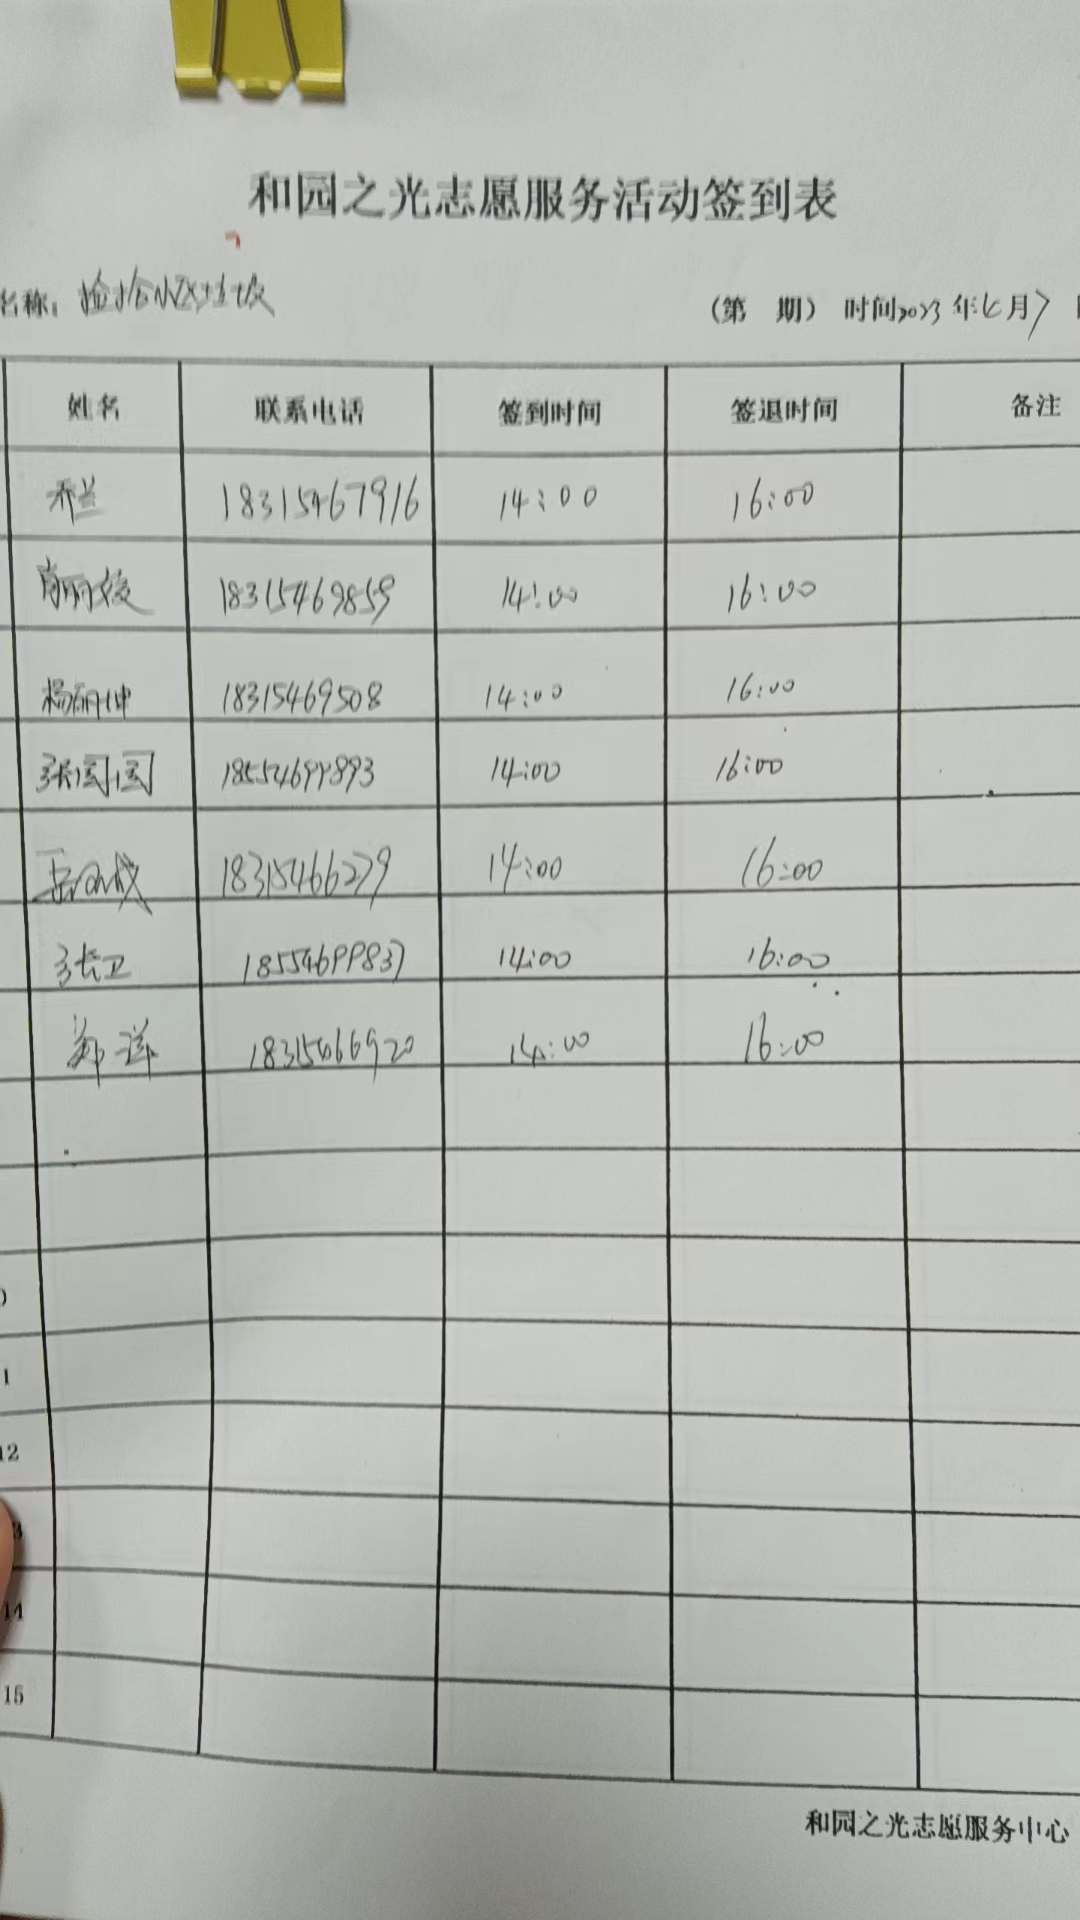 和园之光志愿服务活动签到表
名称：捡拾小区垃圾 （第 期） 时间2023年6月7
姓名 联系电话 签到时间 签退时间 备注
乔兰 18315467916 14:00 16:00
肖丽姣 18315469859 14:00 16:00
杨丽坤 18315469508 14:00 16:00
张园园 18554699893 14:00 16:00
18315466279 14:00 16:00
张卫 18554699837 14:00 16:00
郑洋 18315466920 14:00 16:00
12
14
15
和园之光志愿服务中心